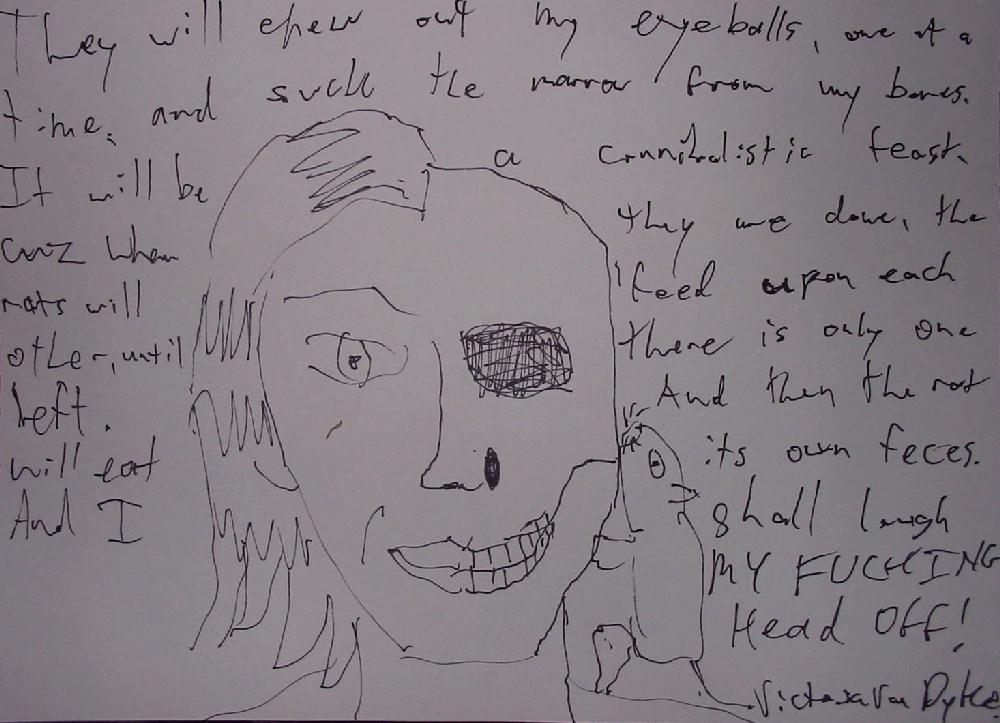 They will chew out my eyeballs, one at a
time, and suck the marrow from my bones.
It will be a cannibalistic feast.
cuz when they are done, the
rats will feed upon each
other, until there is only one
left. And then the rat
will eat its own feces.
And I shall laugh
MY FUCKING
Head OFF!